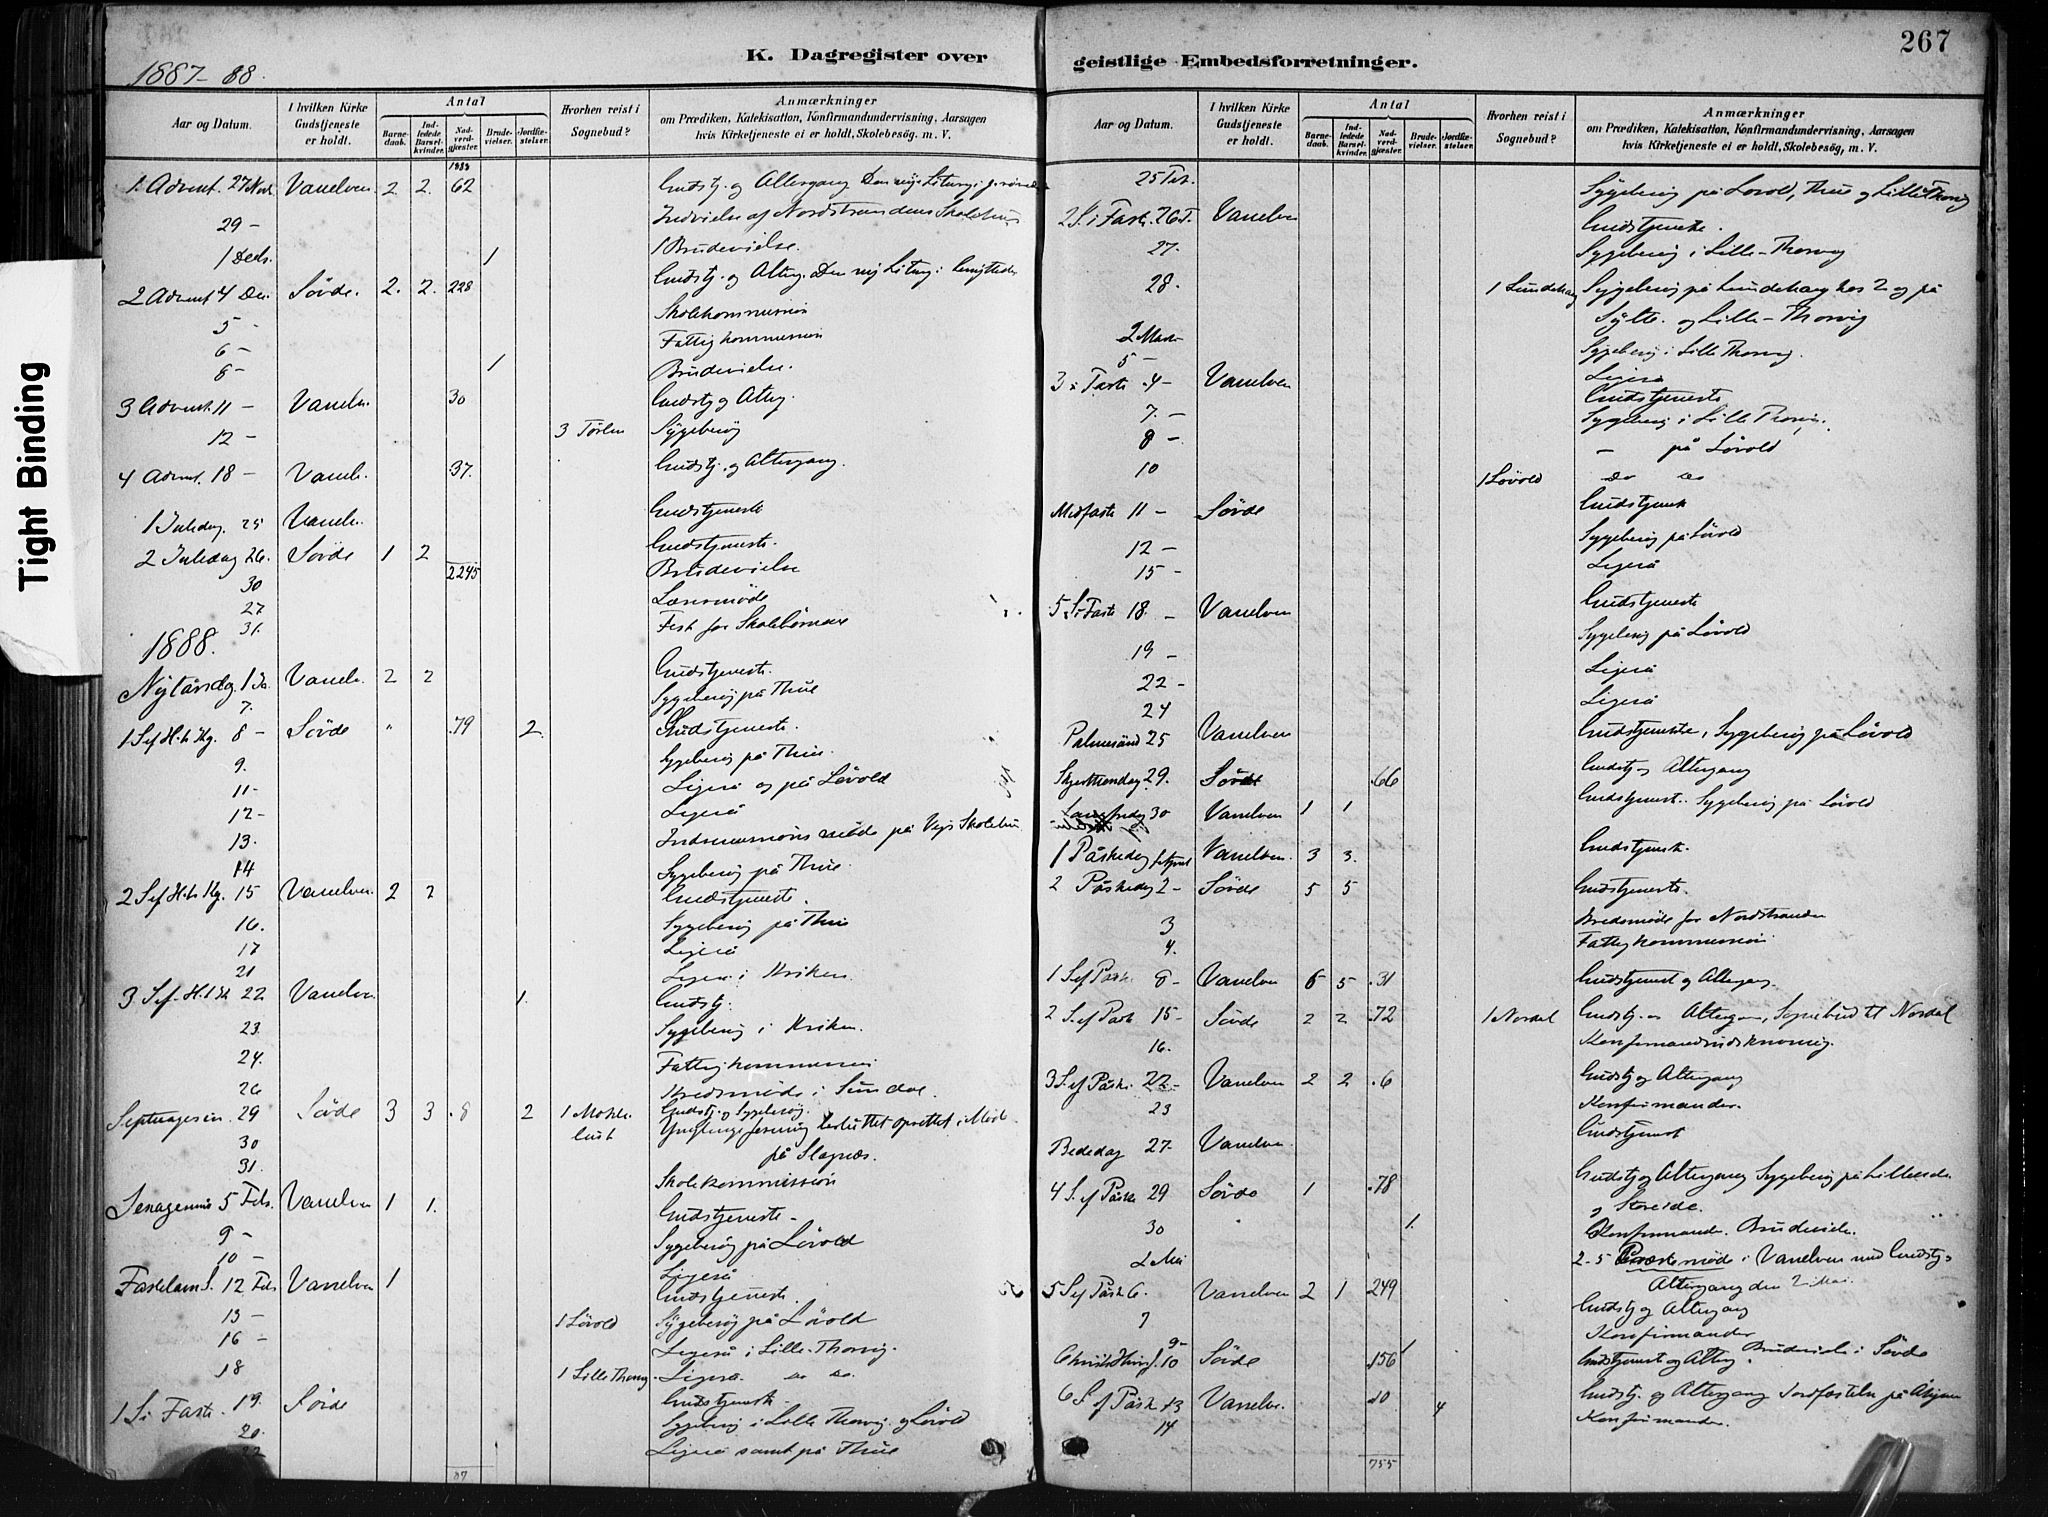 Tight Binding
1887-88.
K. Dagregister over
Aar og Datum.
I hvilken Kirke Gudstjeneste er holdt.
Antal
Barnedaab.
Indledede Barselkvinder.
Nadverdgjæster.
Brudevielser.
Jordfæstelser.
Hvorhen reist i Sognebud?
Anmærkninger
om Prædiken, Katekisation, Konfirmandundervisning, Aarsagen
hvis Kirketjeneste ei er holdt, Skolebesög, m. V.
1 Advent. 27 Nov. Vanelven 2. 2. 62 Gudstj. og Altergang Den nye Liturgi
29 - Indvielse af Nordstrandens Skolehus
1 Decb. 1 1 Brudevielse.
2 Advent 4 Dec Sövde. 2. 2. 228 Gudstj. og Alterg. Den nye Liturgi benyttedes
5 - Skolekommission
6 - Fattigkommission
8 - 1 Brudevielse.
3 Advent. 11 - Vanelv. 30 Gudstj og Alterg.
12 - 3 Sygebesög
4 Advent. 18 - Vanelv. 37. Gudstj. og Altergang.
1 Juledag. 25 Vanelv. Gudstjeneste
2 Juledag 26. Sövde 1 2 Gudstjeneste.
2245
30 Brudevielse
27 Lærermöde
31. Fest for Skolebörnene
1888.
Nytårsdag. 1 Ja. Vanelv. 2 2 Gudstjeneste.
7. Sygebesög på Thue
1 S ef H. t. Kg. 8 - Sövde " 79 2. Gudstjeneste.
9. Sygebesög på Thue.
11 - Ligeså og på Lövold
12 - Ligeså
13. på Vejs Skolehus
14 Sygebesög på Thue.
2 S ef H. t. Kg. 15 Vanelven. 2 2 Gudstjeneste.
16. Sygebesög på Thue
17 Ligeså
21 Ligeså i Kriken.
3 S ef H. t. K 22 Vanelven. 1. Gudstj.
23. Sygebesög i Kriken.
24. Fattigkommission
26 Kredsmöde i Sundal.
Septuagesim. 29 Sövde 3 3 8 2 1 Gudstj. og Sygebesög.
30 Ynglingeforening besluttet oprettet i Möde
31. på Slagnæs.
Skolekommission
5 Feb. Vanelven 1 1. Gudstjeneste -
9 - Sygebesög på Lövold
10 - Ligeså
Fastelavns S. 12 Feb Vanelven 1 Gudstjeneste.
13 - 1 Lövold Sygebesög på Lövold
16 - Ligeså i Lille-Thorvig.
18 1 Lille Thorvig Ligeså. do do.
1 S i Faste. 19. Sövde Gudstjeneste.
20. Sygebesög i Lille Thorvig og Lövold
22 Ligeså samt på Thue
267
geistlige Embedsforretninger.
Aar og Datum.
I hvilken Kirke Gudstjeneste er holdt.
Antal
Barnedaab.
Indledede Barselkvinder.
Nadverdgjæster.
Brudevielser.
Jordfæstelser.
Hvorhen reist i Sognebud?
Anmærkninger
om Prædiken, Katekisation, Konfirmandundervisning, Aarsagen
hvis Kirketjeneste ei er holdt, Skolebesög, m. V.
25 Feb. Sygebesög på Lövold, Thue og Lille Thorvig
2 S. i Fast. 26 F. Vanelven Gudstjeneste.
27. Sygebesög i Lille-Thorvig
28. 1 Lundehaug Sygebesög på Lundehaug hos 2 og på
Sylte. og Lille-Thorvig
2 Marts Sygebesög i Lille Thorvig.
5 - Ligeså
3 i Faste 4 - Vanelven Gudstjeneste
7. - Sygebesög i Lille Thorvig.
8 - — på Lövold
10 1 Lövold do do
Midfaste 11 - Sövde Gudstjeneste
12 - Sygebesög på Lövold
15 - Ligeså
5 S i Faste 18. - Vanelven Gudstjeneste
19 - Sygebesög på Lövold
22 - Ligeså
24 Ligeså
Palmesönd 25 Vanelven Gudstjeneste, Sygebesög på Lövold
Skjærthorsdag 29. Sövde 66 Gudstj og Altergang
Langfredag 30 Vanelven 1 1 Gudstjeneste. Sygebesög på Lövold
1 Påskedag Vanelven. 3 3. Gudstjeneste.
2 Påskedag 2 - Sövde 5 5 Gudstjeneste.
3 Kredsmöde for Nordstranden
4. Fattigkommission
1 S ef Påsk. 8 - Vanelven 6 5 31 Gudstjeneste og Altergang.
2 S. ef Påsk 15 - Sövde 2 2 72 1 Nordal Gudstj. og Altergang, Sognebud til Nordal
16. Konfirmandindskrivning.
3 S. ef Påsk. 22 - Vanelven 2 2 6 Gudstj og Altergang
23 Konfirmander.
Bededag 27. Vanelven. Gudstjeneste
4 S. ef Påsk 29 Sövde 1 78 Gudstj og Altergang Sygebesög på Lilleeide
og Storeide.
30 1. Konfirmander. Brudevielse.
2 Mai 2-5 Præstemöde i Vanelven med Gudstj og
Altergang den 2 Mai.
5 S ef Påsk 6. Vanelven 2 1 249 Gudstj og Altergang
7 Konfirmander
9 - 1 Brudevielse i Sövde
Christi Himf. 10 Sövde 156 Gudstjeneste og Alterg.
6 S. ef Påsk 13 Vanelv. 10 4 Gudstj. og Altergang Jordfæstelse på
14 Konfirmander.
755